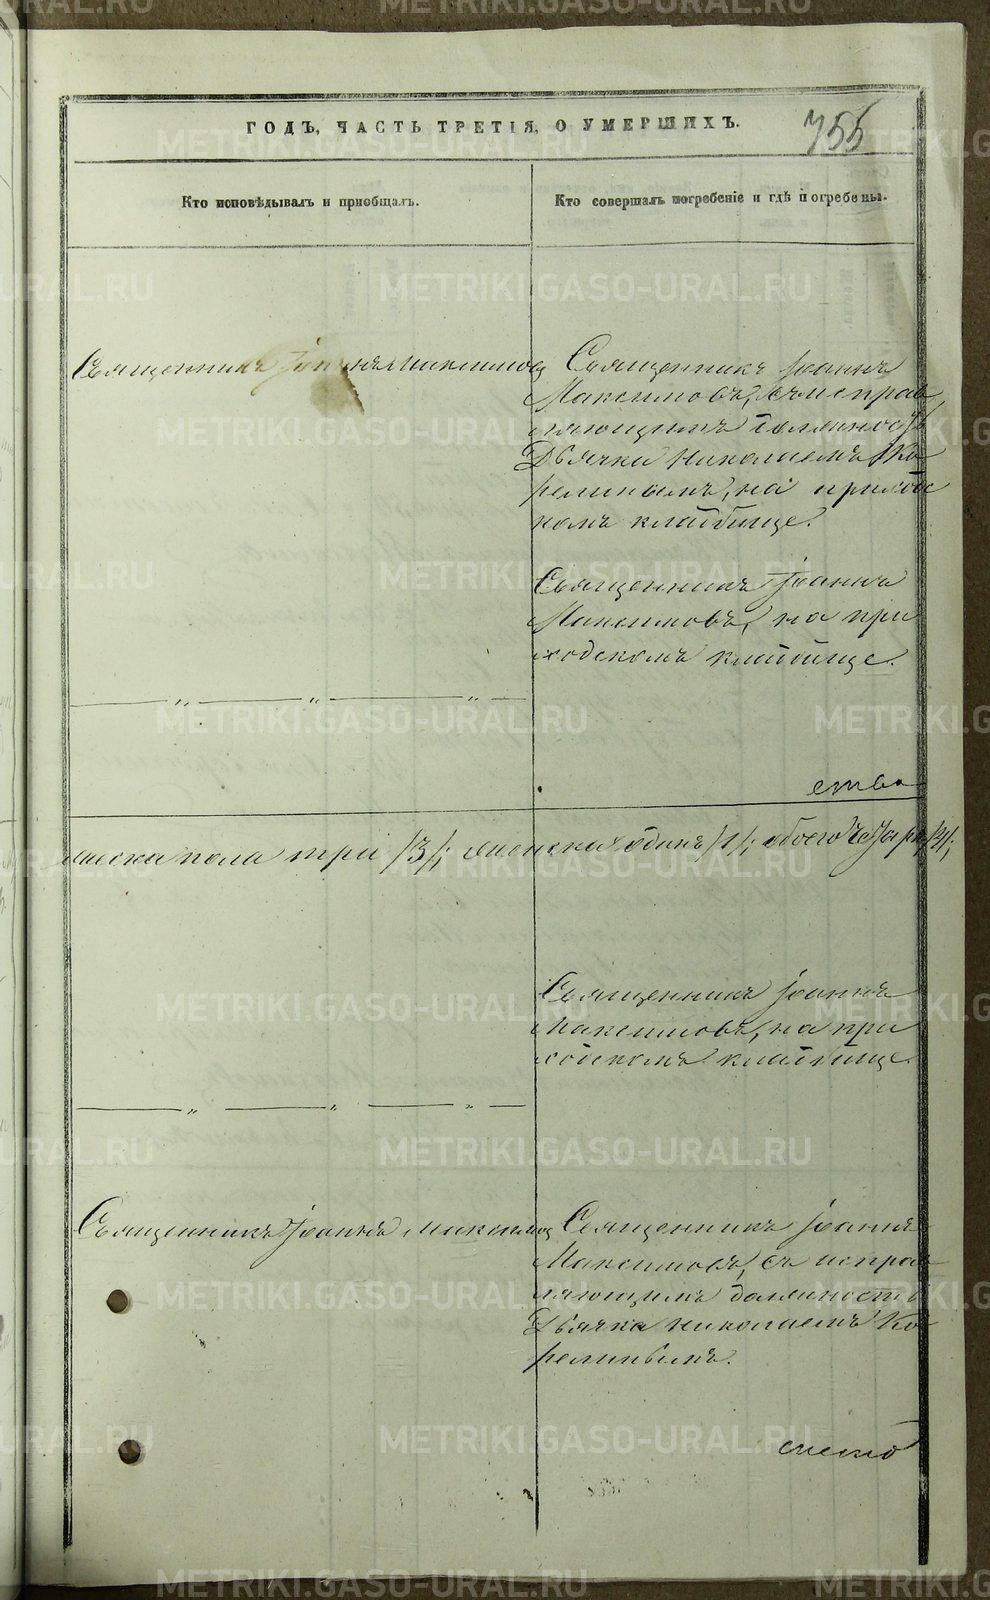 755
ГОДЪ, ЧАСТЬ ТРЕТІЯ, О УМЕРШИХЪ.
Кто исповѣдывалъ и приобщалъ.
Кто совершалъ погребеніе и гдѣ погребены.
Священникъ Іоаннъ Максимовъ
Священникъ Іоаннъ
Максимовъ, съ исправ
ляющимъ должность
Дьячка Николаемъ Ко
релинымъ, на приход
комъ кладбище.
Священникъ Іоаннъ
Максимовъ, на при
ходскомъ кладбище.
ства
мужска пола три /3/; женска один /1/; обоего четыре /4/;
Священникъ Іоаннъ
Максимовъ, на при
ходскомъ кладбище.
Священникъ Іоаннъ Максимов
Священникъ Іоаннъ
Максимовъ, съ исправ
ляющимъ должность
Дьячка Николаемъ Ко
релинымъ.
METRIKI.GASO-URAL.RU